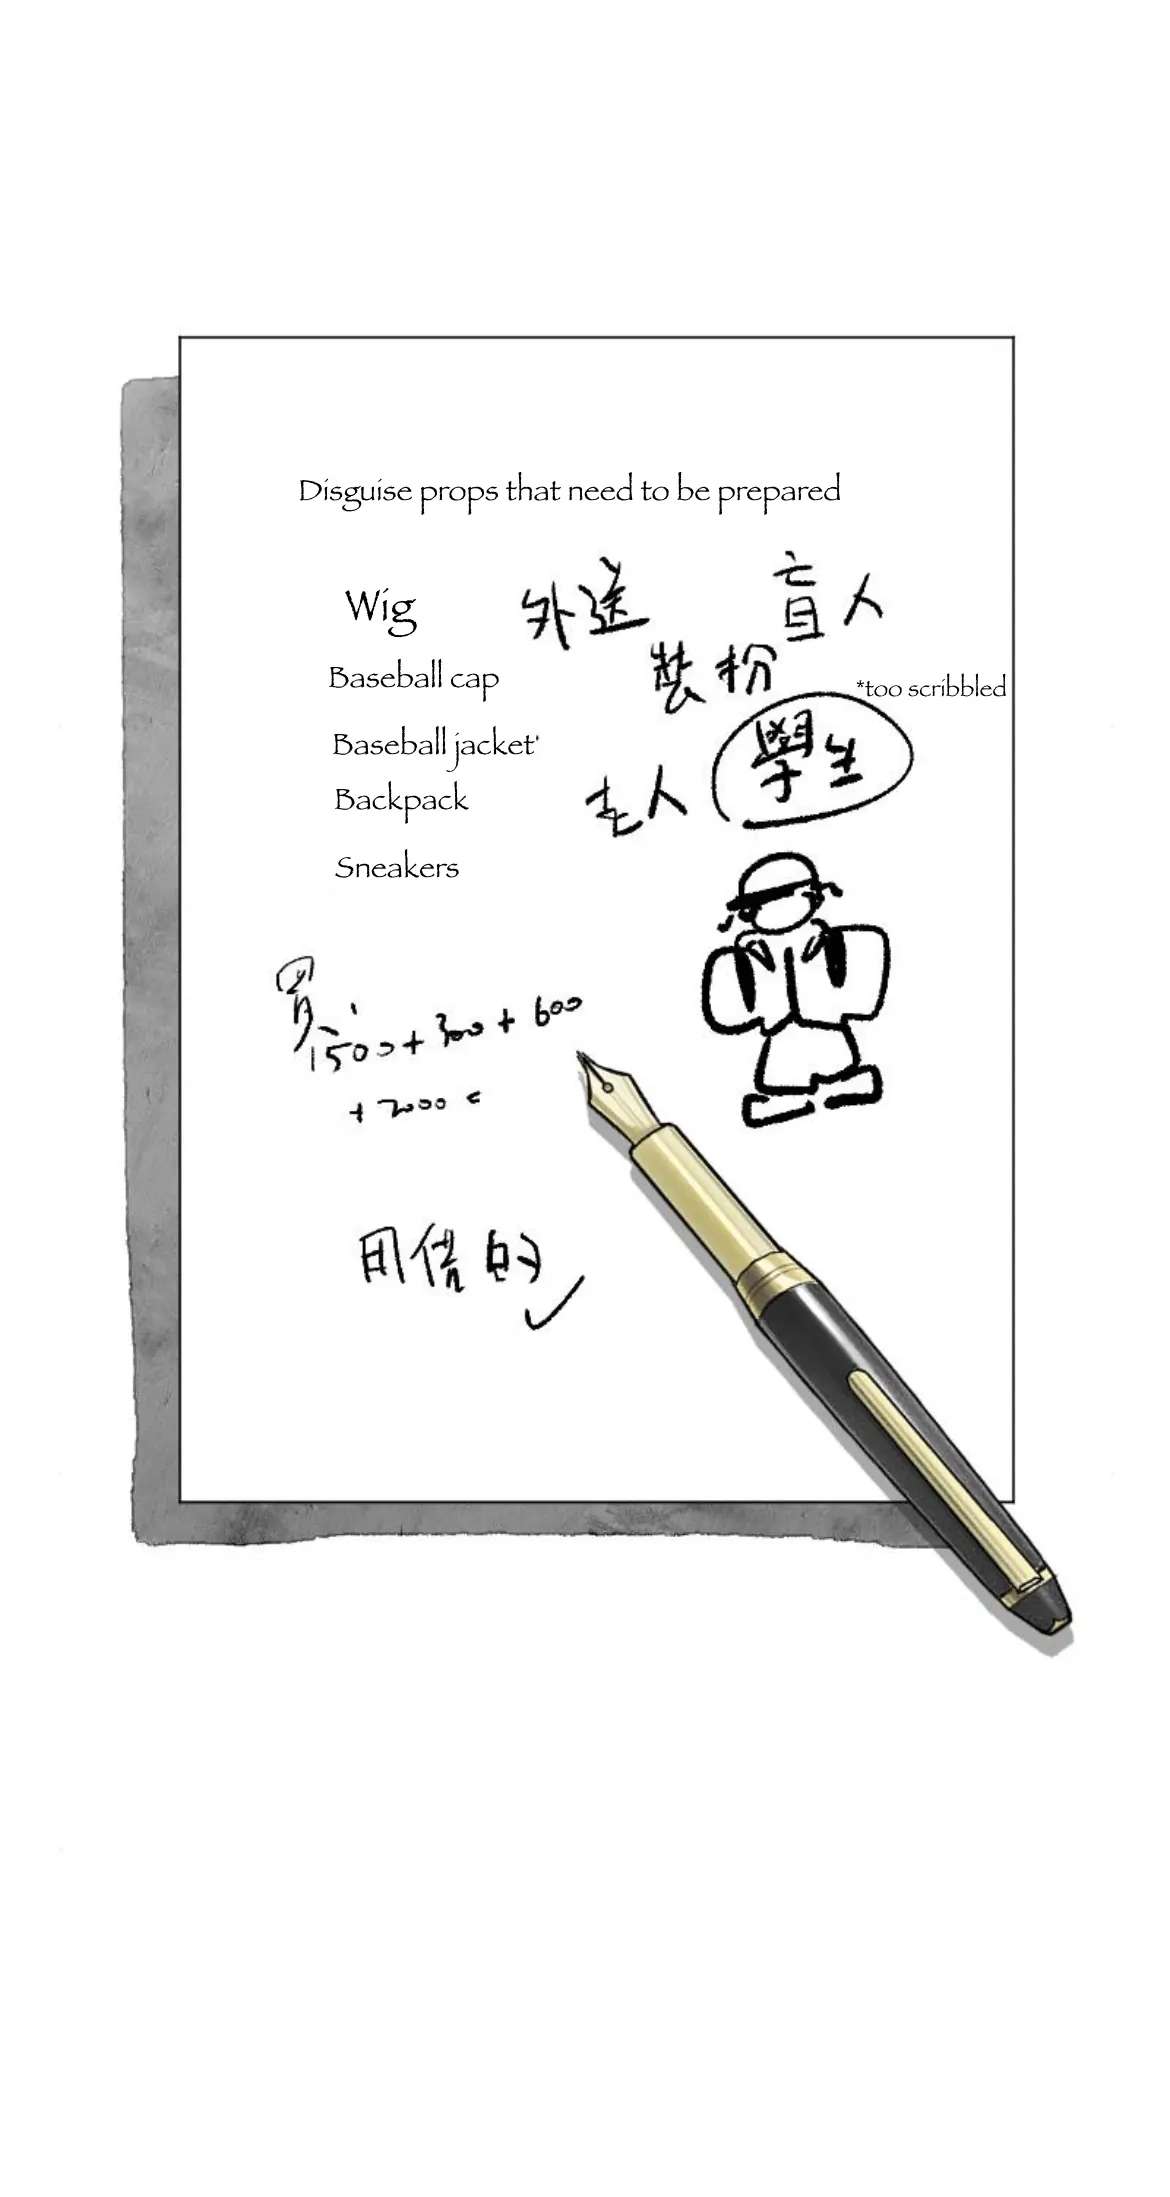 Disguise props that need to be prepared
Wig
外送
盲人
Baseball cap
裝扮
*too scribbled
Baseball jacket'
學生
Backpack
老人
Sneakers
買
1500+300+600
+2000=
用借的